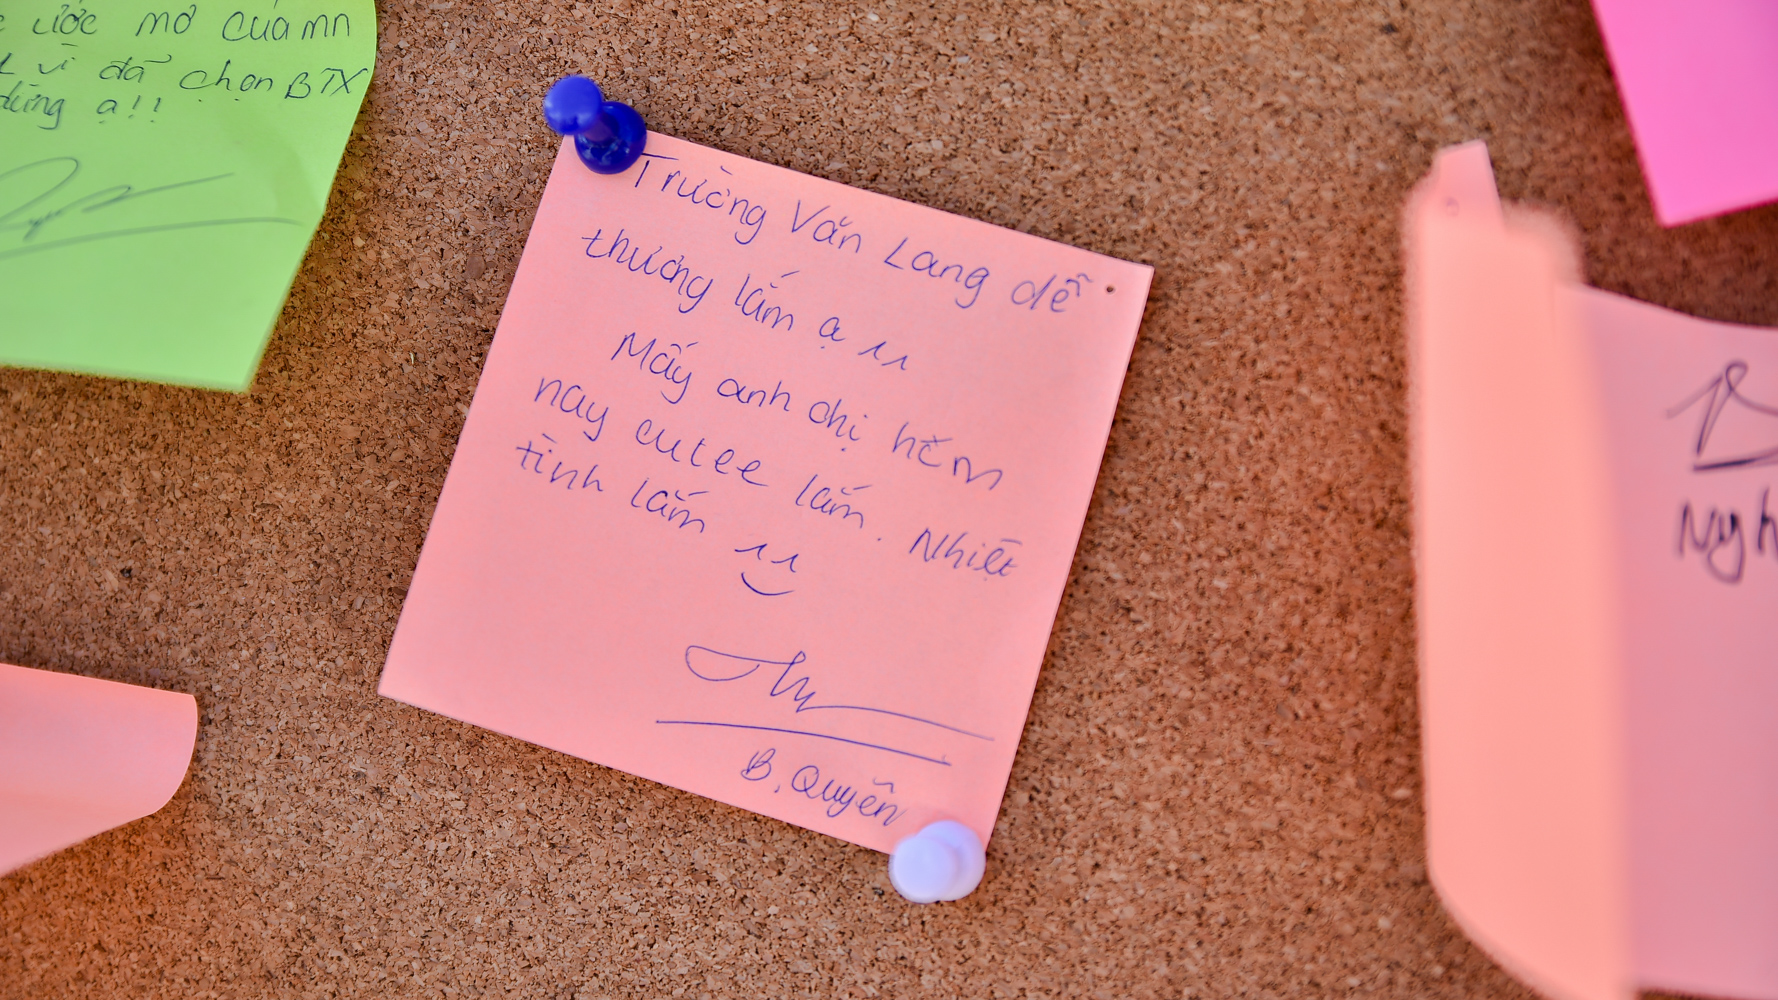 ước mơ của mn
vì đã chọn BTX
dừng ạ!!
Trường Văn Lang dễ
thương lắm ạ
Mấy anh chị hôm
nay cutee lắm. Nhiệt
tình lắm
B. Quyên